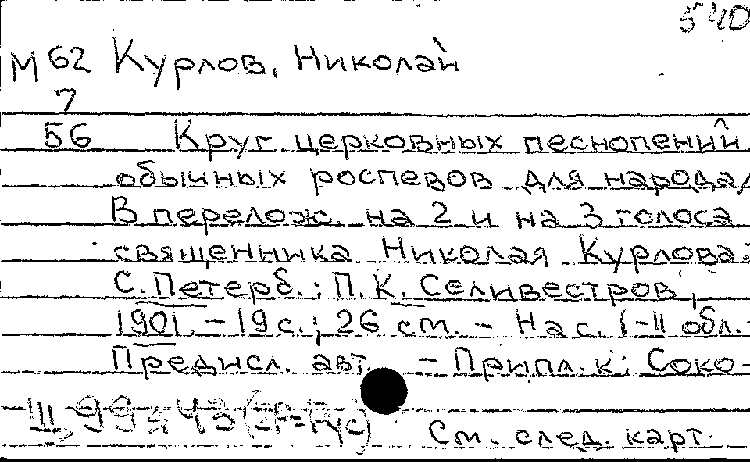 540
М 62 Курлов, Николай
7
56 Круг церковных песнопений
обычных роспевов для народа/
В перелож. на 2 и на 3 голоса
священника Николая Курлова.
С. Петерб.: П. К. Селивестров,
1901. - 19 с.; 26 см. - На с. I-II обл.-
Предисл. авт. - Припл. к: Соко-
См. след. карт.